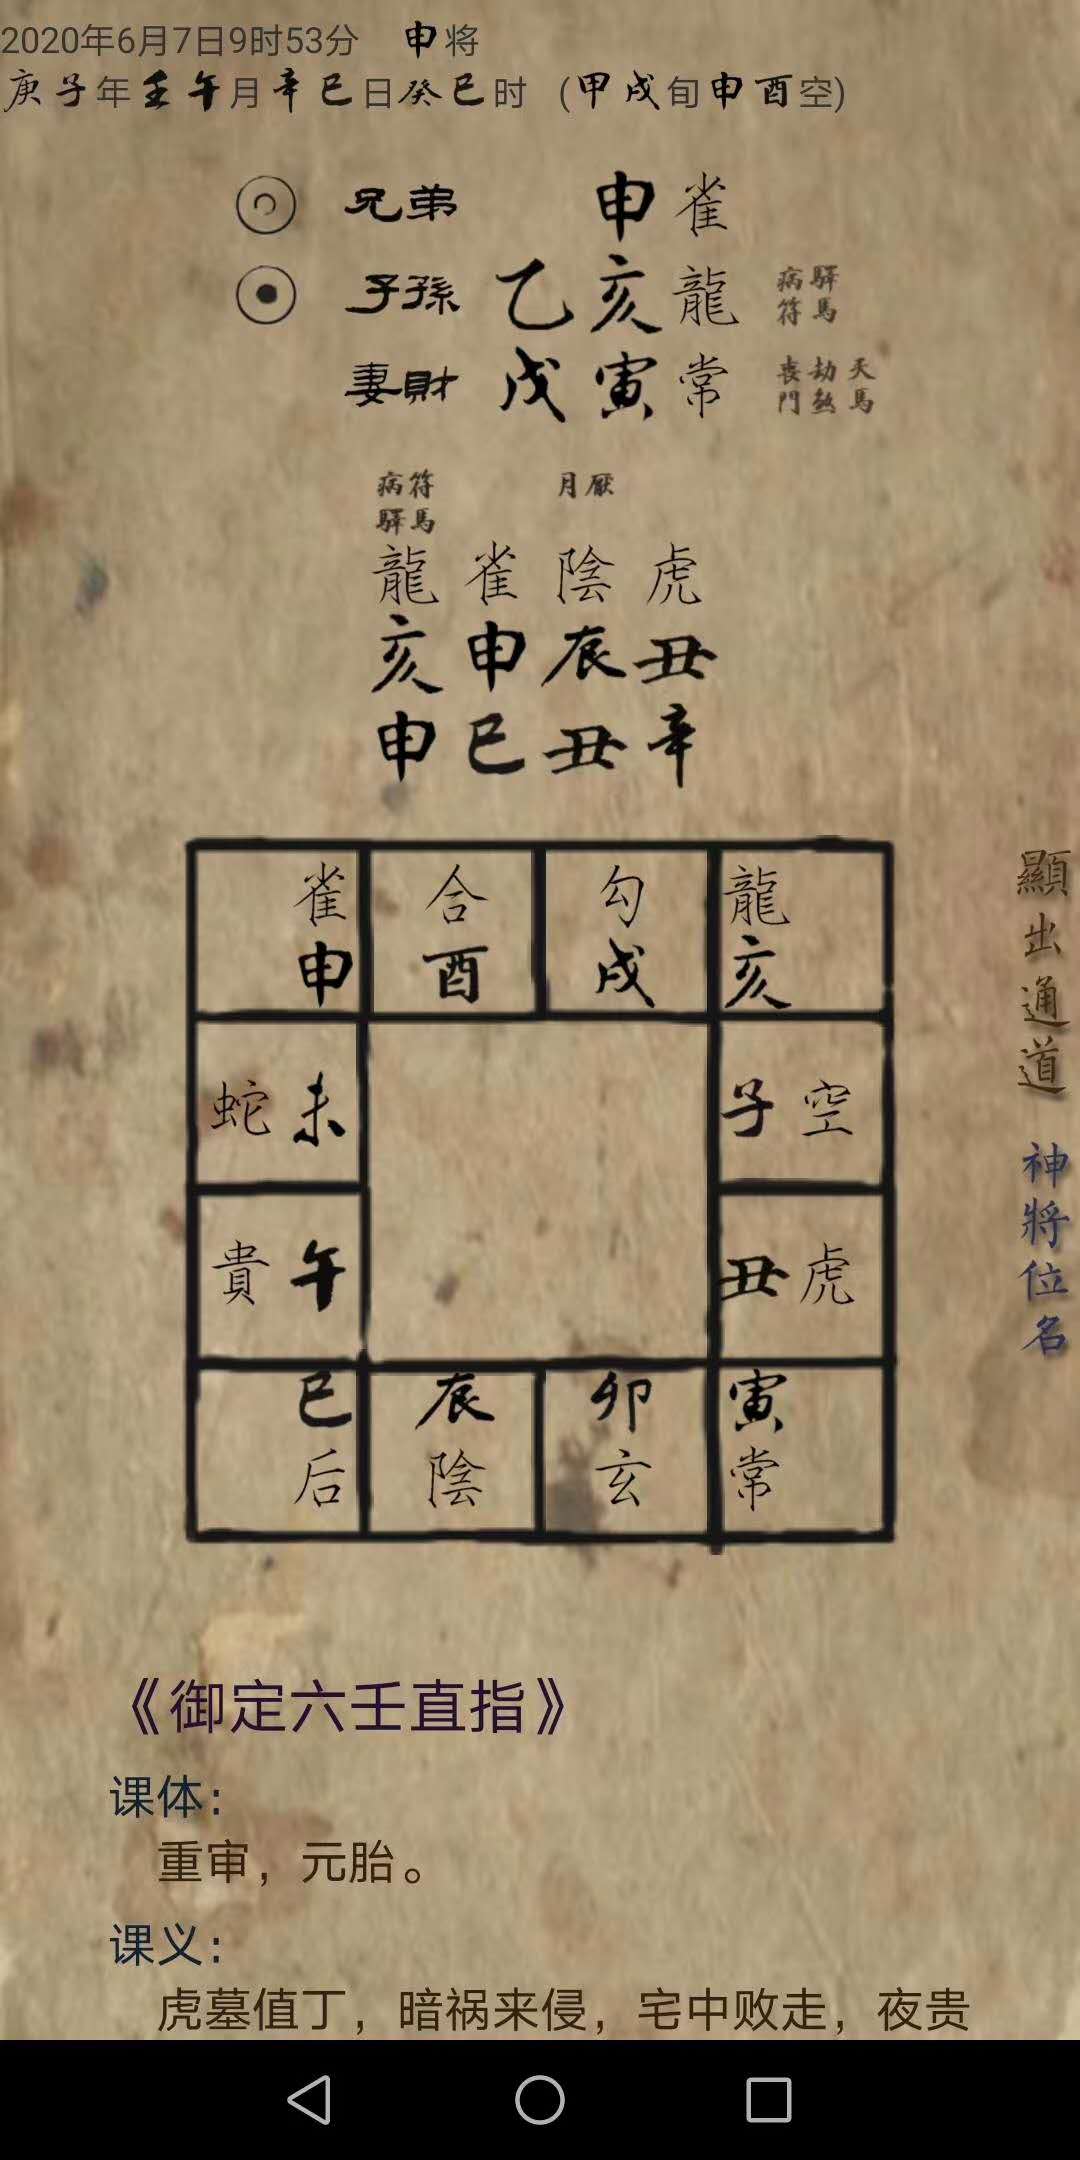 2020年6月7日9时53分 申将
庚子年壬午月辛巳日癸巳时 (甲戌旬申酉空)
兄弟 申雀
子孫 乙亥龍 病符 驛馬
妻財 戊寅常 喪門 劫煞 天馬
病符 月厭
驛馬
龍雀陰虎
亥申辰丑
申巳丑辛
雀 合 勾 龍
申 酉 戌 亥
蛇未 子空
貴午 丑虎
巳 辰 卯 寅
后 陰 玄 常
顯出通道
神將位名
《御定六壬直指》
课体:
重审，元胎。
课义:
虎墓值丁，暗祸来侵，宅中败走，夜贵